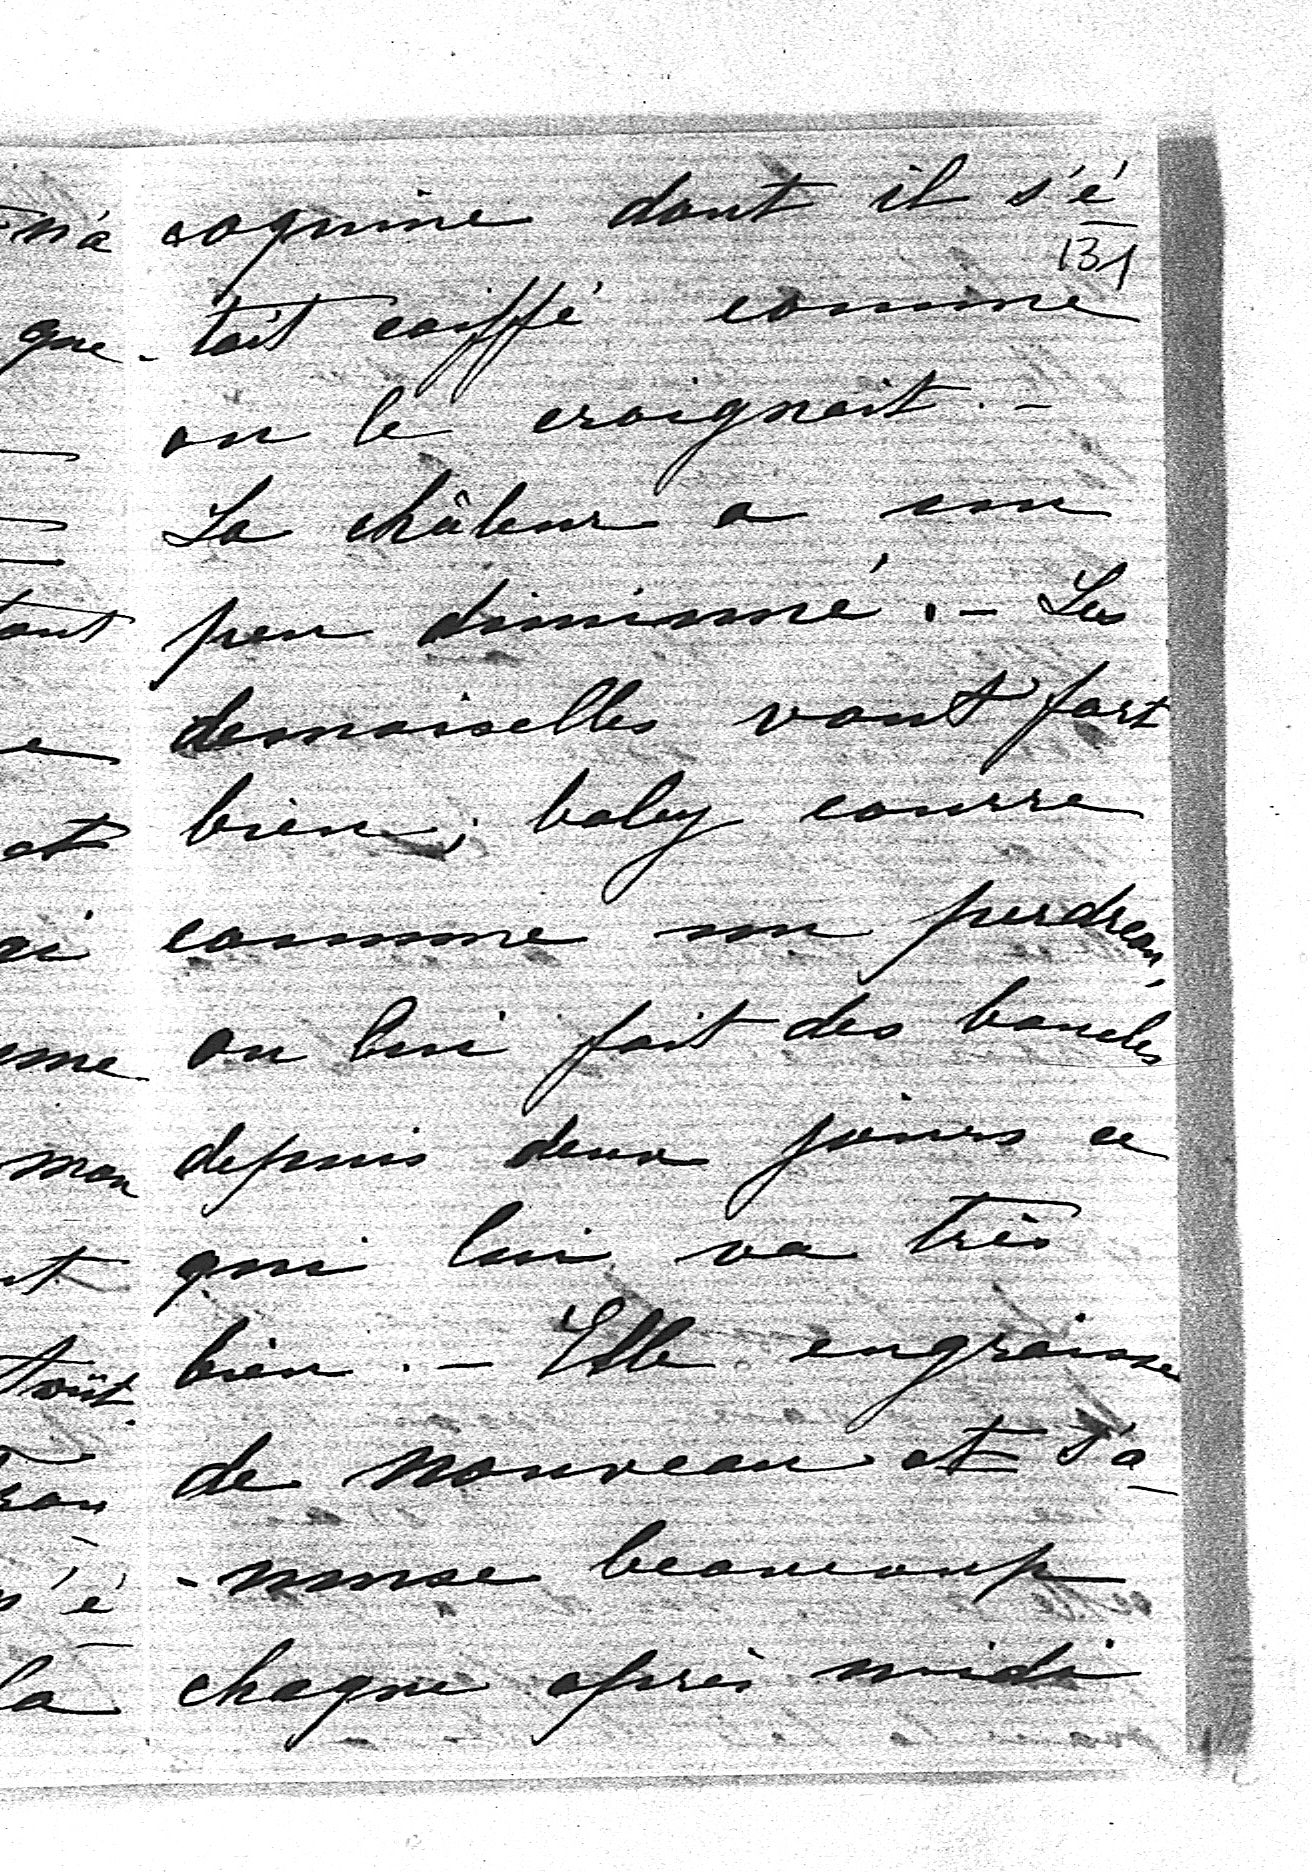 coquine dont il s'é
131
tait coiffé comme
on le craignait. -
La châleur a un
peu diminué. - Les
demoiselles vont fort
bien; baby courre
comme un perdreau,
on lui fait des boucles
depuis deux jours ce
qui lui va très
bien. - Elle engraisse
de nouveau et s'a
-muse beaucoup
chaque après midi
n'a
que
tout
et
mon
n'é
la